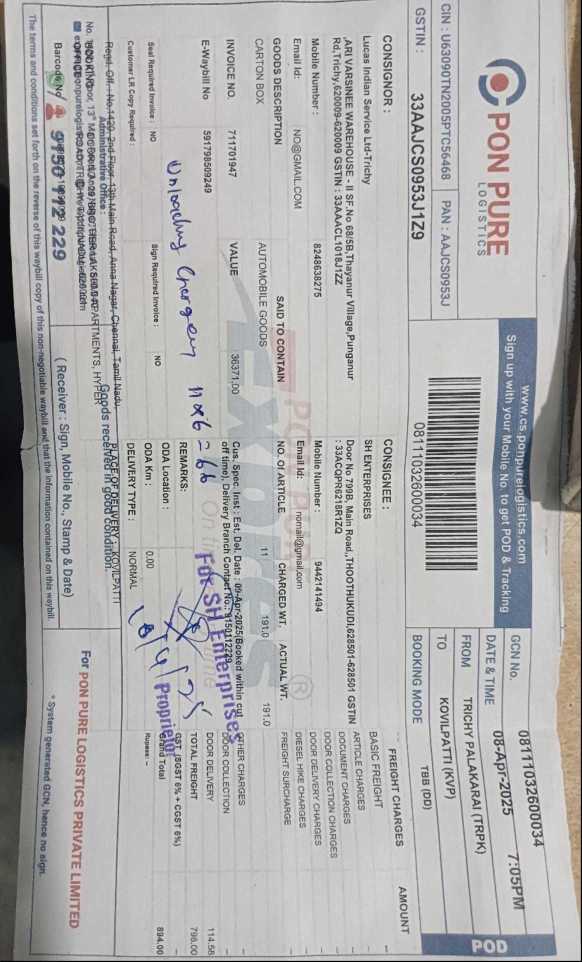 PON PURE
LOGISTICS
www.cs.ponpurelogistics.com
Sign up with your Mobile No. to get POD & Tracking
POD
CIN : U63090TN2005PTC56468
PAN : AAJCS0953J
GSTIN : 33AAJCS0953J1Z9
08111032600034
GCN No. 08111032600034
DATE & TIME 08-Apr-2025 7:05PM
FROM TRICHY PALAKARAI (TRPK)
TO KOVILPATTI (KVP)
BOOKING MODE TBB (DD)
CONSIGNOR :
Lucas Indian Service Ltd-Trichy
,ARI VARSINEE WAREHOUSE - II SF.No 68/5B,Thayanur Village,Punganur
Rd,Trichy,620009-620009 GSTIN : 33AAACL1018J1ZZ
Mobile Number : 8248638275
Email Id: NO@GMAIL.COM
CONSIGNEE :
SH ENTERPRISES
Door No 799B, Main Road,,THOOTHUKUDI,628501-628501 GSTIN
: 33ACQPR6218R1ZQ
Mobile Number : 9442141494
Email Id: nomail@gmail.com
FREIGHT CHARGES AMOUNT
BASIC FREIGHT -
ARTICLE CHARGES -
DOCUMENT CHARGES -
DOOR COLLECTION CHARGES -
DOOR DELIVERY CHARGES -
DIESEL HIKE CHARGES -
FREIGHT SURCHARGE -
OTHER CHARGES -
DOOR COLLECTION -
DOOR DELIVERY 114.58
TOTAL FREIGHT 798.00
GST (SGST 6% + CGST 6%) -
Grand Total 894.00
Rupees: -
GOODS DESCRIPTION SAID TO CONTAIN NO. Of ARTICLE CHARGED WT. ACTUAL WT.
CARTON BOX AUTOMOBILE GOODS 11 191.0 191.0
INVOICE NO. 711701947 VALUE 36371.00
Cus. Spec. Inst : Est. Del. Date : 09-Apr-2025(Booked within cut
off time), Delivery Branch Contact No.: 9150112229
E-Waybill No 591798509249
REMARKS:
ODA Location :
ODA Km : 0.00
Unloading Charges 11x6=66
For SH Enterprises
Proprietor
10/4/25
Seal Required Invoice : NO Sign Required Invoice : NO
Customer LR Copy Required :
DELIVERY TYPE : NORMAL
PLACE OF DELIVERY : KOVILPATTI
Regd. Off. : No.1429, 2nd Floor, 13th Main Road, Anna Nagar, Chennai, Tamil Nadu
Administrative Office :
Goods received in good condition.
Barcode No/ 9150 112 229
( Receiver : Sign, Mobile No., Stamp & Date)
For PON PURE LOGISTICS PRIVATE LIMITED
* System generated GCN, hence no sign.
The terms and conditions set forth on the reverse of this waybill copy of this non-negotiable waybill and that the information contained on this waybill